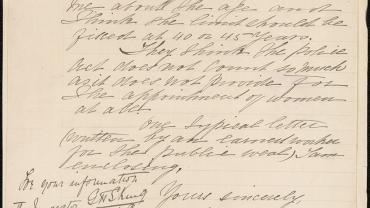 me about the age and
think the limit should be
filled at 40 or 45 Years.
They think the police
act does not count so much
as it does not provide for
the appointment of women
at all.
One typical letter
(written by an earnest worker
for the public weal) I am
enclosing.
For your information
Yours sincerely,